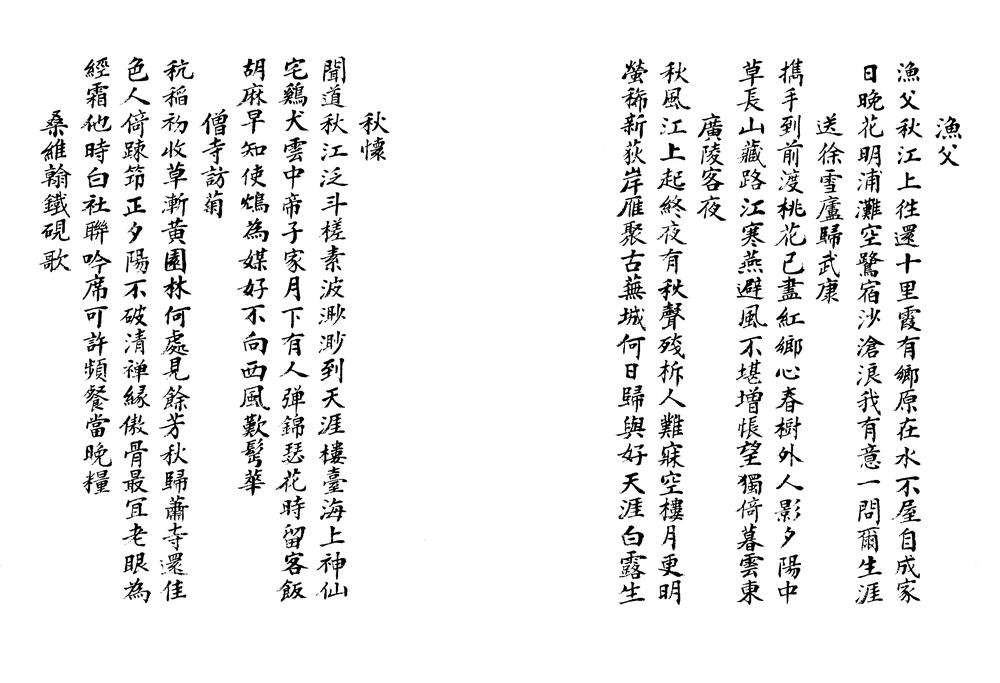 漁父
漁父秋江上往還十里霞有鄉原在水不屋自成家
日晚花明浦灘空鷺宿沙滄浪我有意一問爾生涯
送徐雪廬歸武康
攜手到前渡桃花已盡紅鄉心春樹外人影夕陽中
草長山藏路江寒燕避風不堪增悵望獨倚暮雲東
廣陵客夜
秋風江上起終夜有秋聲殘柝人難寐空樓月更明
螢稀新荻岸雁聚古蕪城何日歸與好天涯白露生
秋懷
聞道秋江泛斗槎素波渺渺到天涯樓臺海上神仙
宅鷄犬雲中帝子家月下有人彈錦瑟花時留客飯
胡麻早知使鴆為媒好不向西風歎髩華
僧寺訪菊
秔稲初收草漸黃園林何處見餘芳秋歸蕭寺還佳
色人倚踈笻正夕陽不破清禅緣傲骨最宜老眼為
經霜他時白社聯吟席可許頻餐當晚糧
桑維翰鐵硯歌